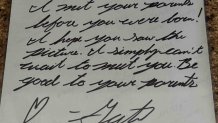 I met your parents
before you were born!
I hope you saw the
picture. I simply can't
wait to meet you Be
good to your parents